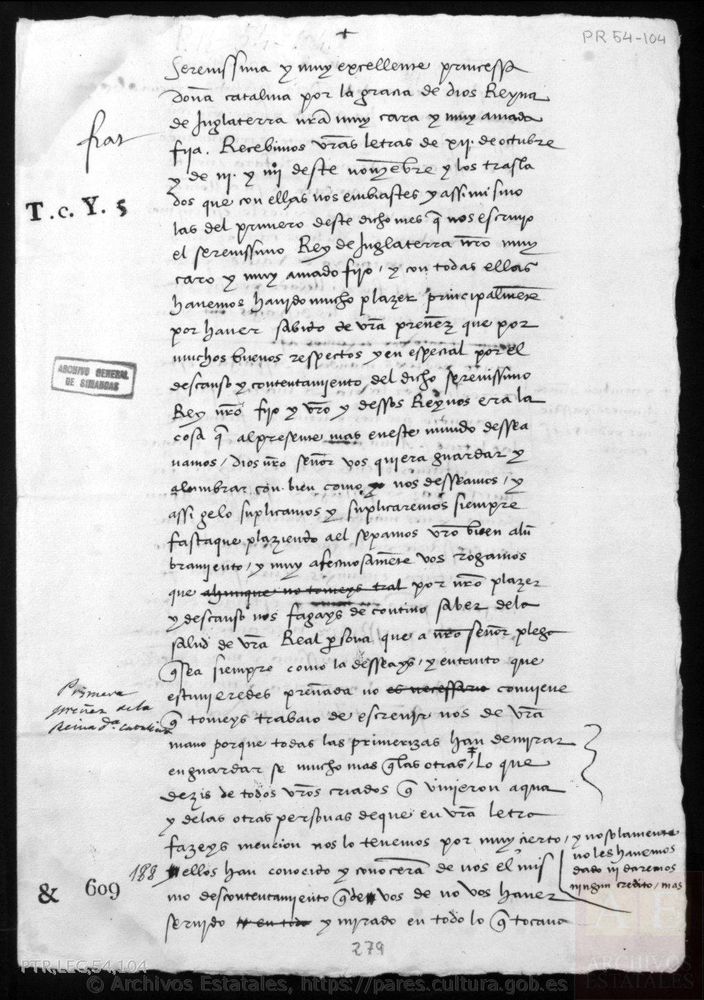 PR 54-104
+
Serenissima y muy excellente princessa
doña catalina por la gracia de dios Reyna
de Inglaterra nra muy cara y muy amada
fija. Recebimos vras letras de xij. de octubre
y de iij. y iiij deste nouyebre y los trasla
dos que con ellas nos embiastes y assi mismo
las del primero deste dicho mes q nos escriuio
el serenissimo Rey de Inglaterra nro muy
caro y muy amado fijo / y con todas ellas
hauemos hauido mucho plazer principalmete
por hauer sabido de vra preñez que por
muchos buenos respectos y en especial por el
descanso y contentamiento del dicho serenissimo
Rey nro fijo y vro y dessos Reynos era la
cosa q al presente mas en este mundo dessea
uamos / dios nro señor vos quiera guardar y
alumbrar con bien como nos desseamos / y
assi gelo suplicamos y suplicaremos siempre
fasta que plaziendo a el sepamos vro buen alu
bramiento / y muy afectuosamete vos rogamos
que ahunque no tomeys tral por nro plazer
y descanso nos fagays de contino saber dela
salud de vra Real psona que a nro señor plega
q sea siempre como la desseays / y entanto que
estuuieredes preñada no es necessario conuiene
q tomeys trabaio de escreuir nos de vra
mano porque todas las primerizas han de mirar
en guardar se mucho mas q las otras / Lo que
dezis de todos vros criados q vinieron aqua
y delas otras personas de que en vra letra
fazeys mencion nos lo tenemos por muy cierto / y no solamente
no les hauemos
dado ni daremos
ningun credito / mas
ellos han conocido y conocera de nos el mis
mo descontentamiento q de vos de no vos hauer
seruido en todo y mirado en todo lo q tocaua
fiat
T. c. Y. 5
ARCHIVO GENERAL
DE SIMANCAS
Primera
preñez de la
Reina da. Catalina
188
& 609
279
PTR,LEG,54,104
© Archivos Estatales, https://pares.cultura.gob.es
AE
ARCHIVOS
ESTATALES